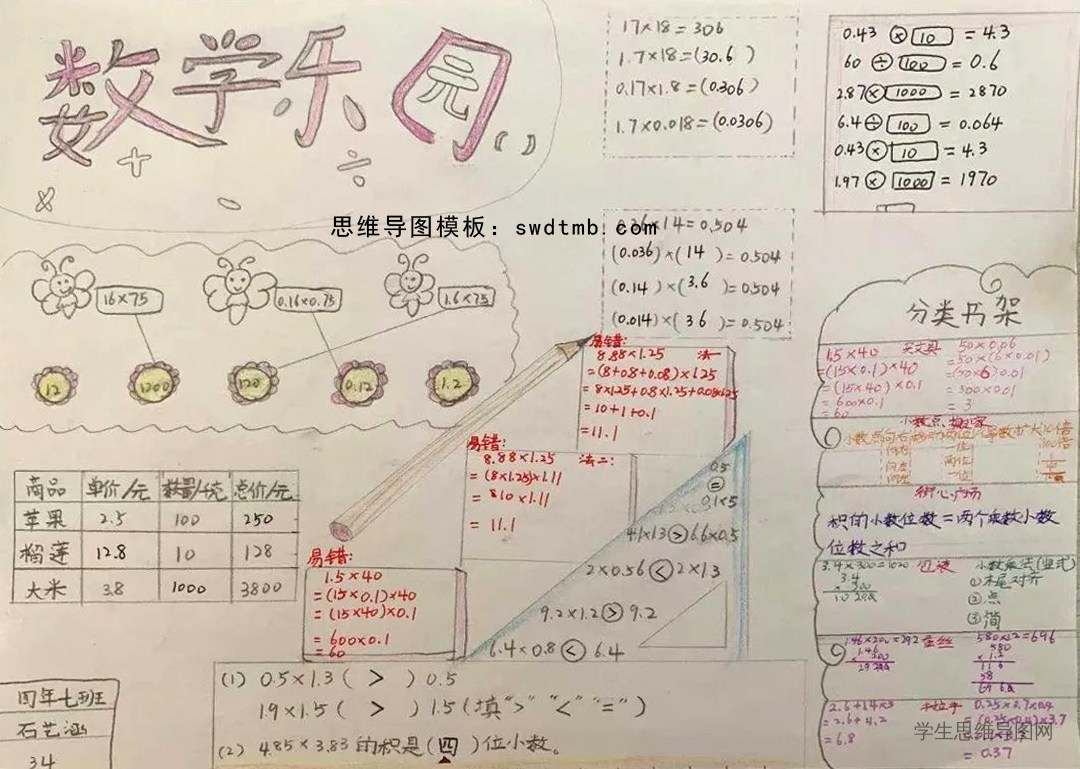 数学乐园
17×18=306
1.7×18=(30.6 )
0.17×1.8=(0.306)
1.7×0.018=(0.0306)
0.43 × 10 = 4.3
60 ÷ 100 = 0.6
2.87 × 1000 = 2870
6.4 ÷ 100 = 0.064
0.43 × 10 = 4.3
1.97 × 1000 = 1970
思维导图模板：swdtmb.com
0.36×14=0.504
(0.036)×( 14 )=0.504
(0.14 )×( 3.6 )=0.504
(0.014)×( 36 )=0.504
16×75
0.16×0.75
1.6×75
12
1200
120
0.12
1.2
易错:
8.88×1.25 法一
=(8+0.8+0.08)×1.25
=8×1.25+0.8×1.25+0.08×1.25
=10+1+0.1
=11.1
易错:
8.88×1.25 法二:
=(8×1.25)×1.11
=810×1.11
=11.1
易错:
1.5×40
=(15×0.1)×40
=(15×40)×0.1
=600×0.1
=60
商品 单价/元 数量/千克 总价/元
苹果 2.5 100 250
榴莲 12.8 10 128
大米 3.8 1000 3800
0.5
=
0.1×5
4.1×13 > 6.6×0.5
2×0.56 < 2×1.3
9.2×1.2 > 9.2
6.4×0.8 < 6.4
(1) 0.5×1.3 ( > ) 0.5
1.9×1.5 ( > ) 1.5 (填">" "<" "=")
(2) 4.85×3.83 的积是(四)位小数。
四年七班
石艺涵
34
分类书架
1.5×40
=(15×0.1)×40
=(15×40)×0.1
=600×0.1
=60
买文具 50×0.06
=50×(6×0.01)
=(50×6)×0.01
=300×0.01
=3
小数点搬家
街心广场
积的小数位数=两个乘数小数
位数之和
3.4×300=1020 包装
3.4
×300
小数乘法(竖式)
①末尾对齐
②点
③简
1.46×200=292 蚕丝
1.46
×200
580×1.2=696
580
×1.2
116
58
2.6+1.4×3
=2.6+4.2
=6.8
手拉手 0.25×3.7×0.4
=(0.25×0.4)×3.7
=0.37
学生思维导图网